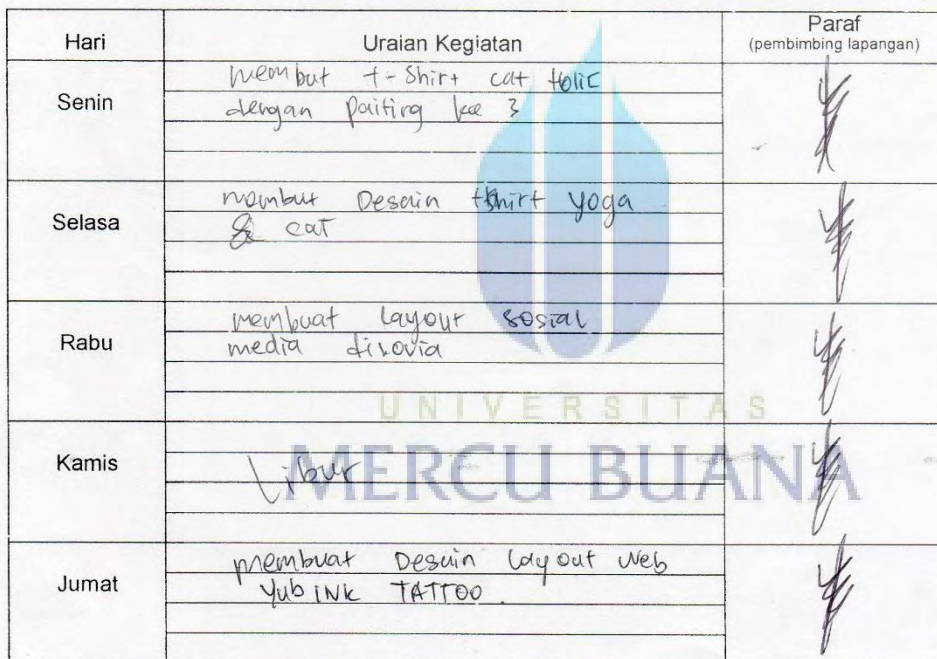 Hari Uraian Kegiatan Paraf
(pembimbing lapangan)
Senin
membut t-Shirt cat Holic
dengan Paiting ke 3
Selasa
membut Desain tshirt yoga
& cat
Rabu
membuat Layout sosial
media
Kamis
Libur
Jumat
membuat Desain Layout Web
Yub INK TATTOO.
UNIVERSITAS
MERCU BUANA